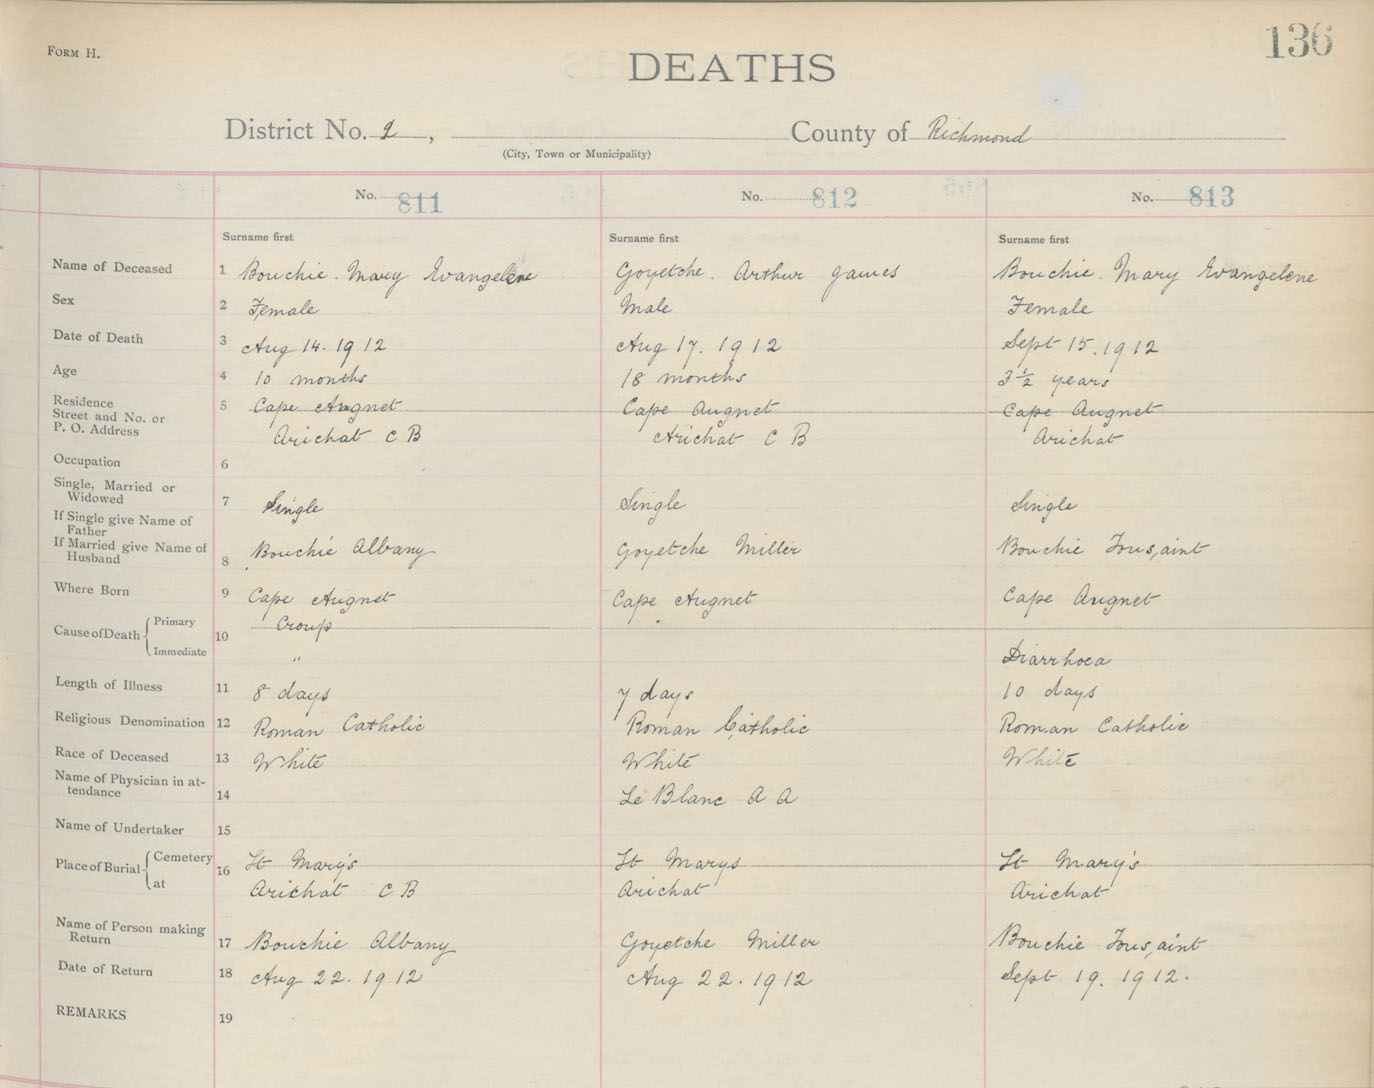 FORM H.
136
DEATHS
District No. 2, County of Richmond
(City, Town or Municipality)
No. 811 No. 812 No. 813
Surname first Surname first Surname first
Name of Deceased 1 Bouchie. Mary Evangelene Goyetche. Arthur James Bouchie. Mary Evangelene
Sex 2 Female Male Female
Date of Death 3 Aug 14. 1912 Aug 17. 1912 Sept 15. 1912
Age 4 10 months 18 months 3 1/2 years
Residence
Street and No. or 5 Cape Augnet Cape Augnet Cape Augnet
P. O. Address Arichat C B Arichat C B Arichat
Occupation 6
Single, Married or
Widowed 7 Single Single Single
If Single give Name of
Father
If Married give Name of
Husband 8 Bouchie Albany Goyetche Miller Bouchie Tousaint
Where Born 9 Cape Augnet Cape Augnet Cape Augnet
Cause of Death Primary 10 Croup
Immediate " Diarrhoea
Length of Illness 11 8 days 7 days 10 days
Religious Denomination 12 Roman Catholic Roman Catholic Roman Catholic
Race of Deceased 13 White White White
Name of Physician in at-
tendance 14 Le Blanc A A
Name of Undertaker 15
Place of Burial Cemetery 16 St Mary's St Marys St Mary's
at Arichat C B Arichat Arichat
Name of Person making
Return 17 Bouchie Albany Goyetche Miller Bouchie Tousaint
Date of Return 18 Aug 22. 1912 Aug 22. 1912 Sept 19. 1912.
REMARKS 19